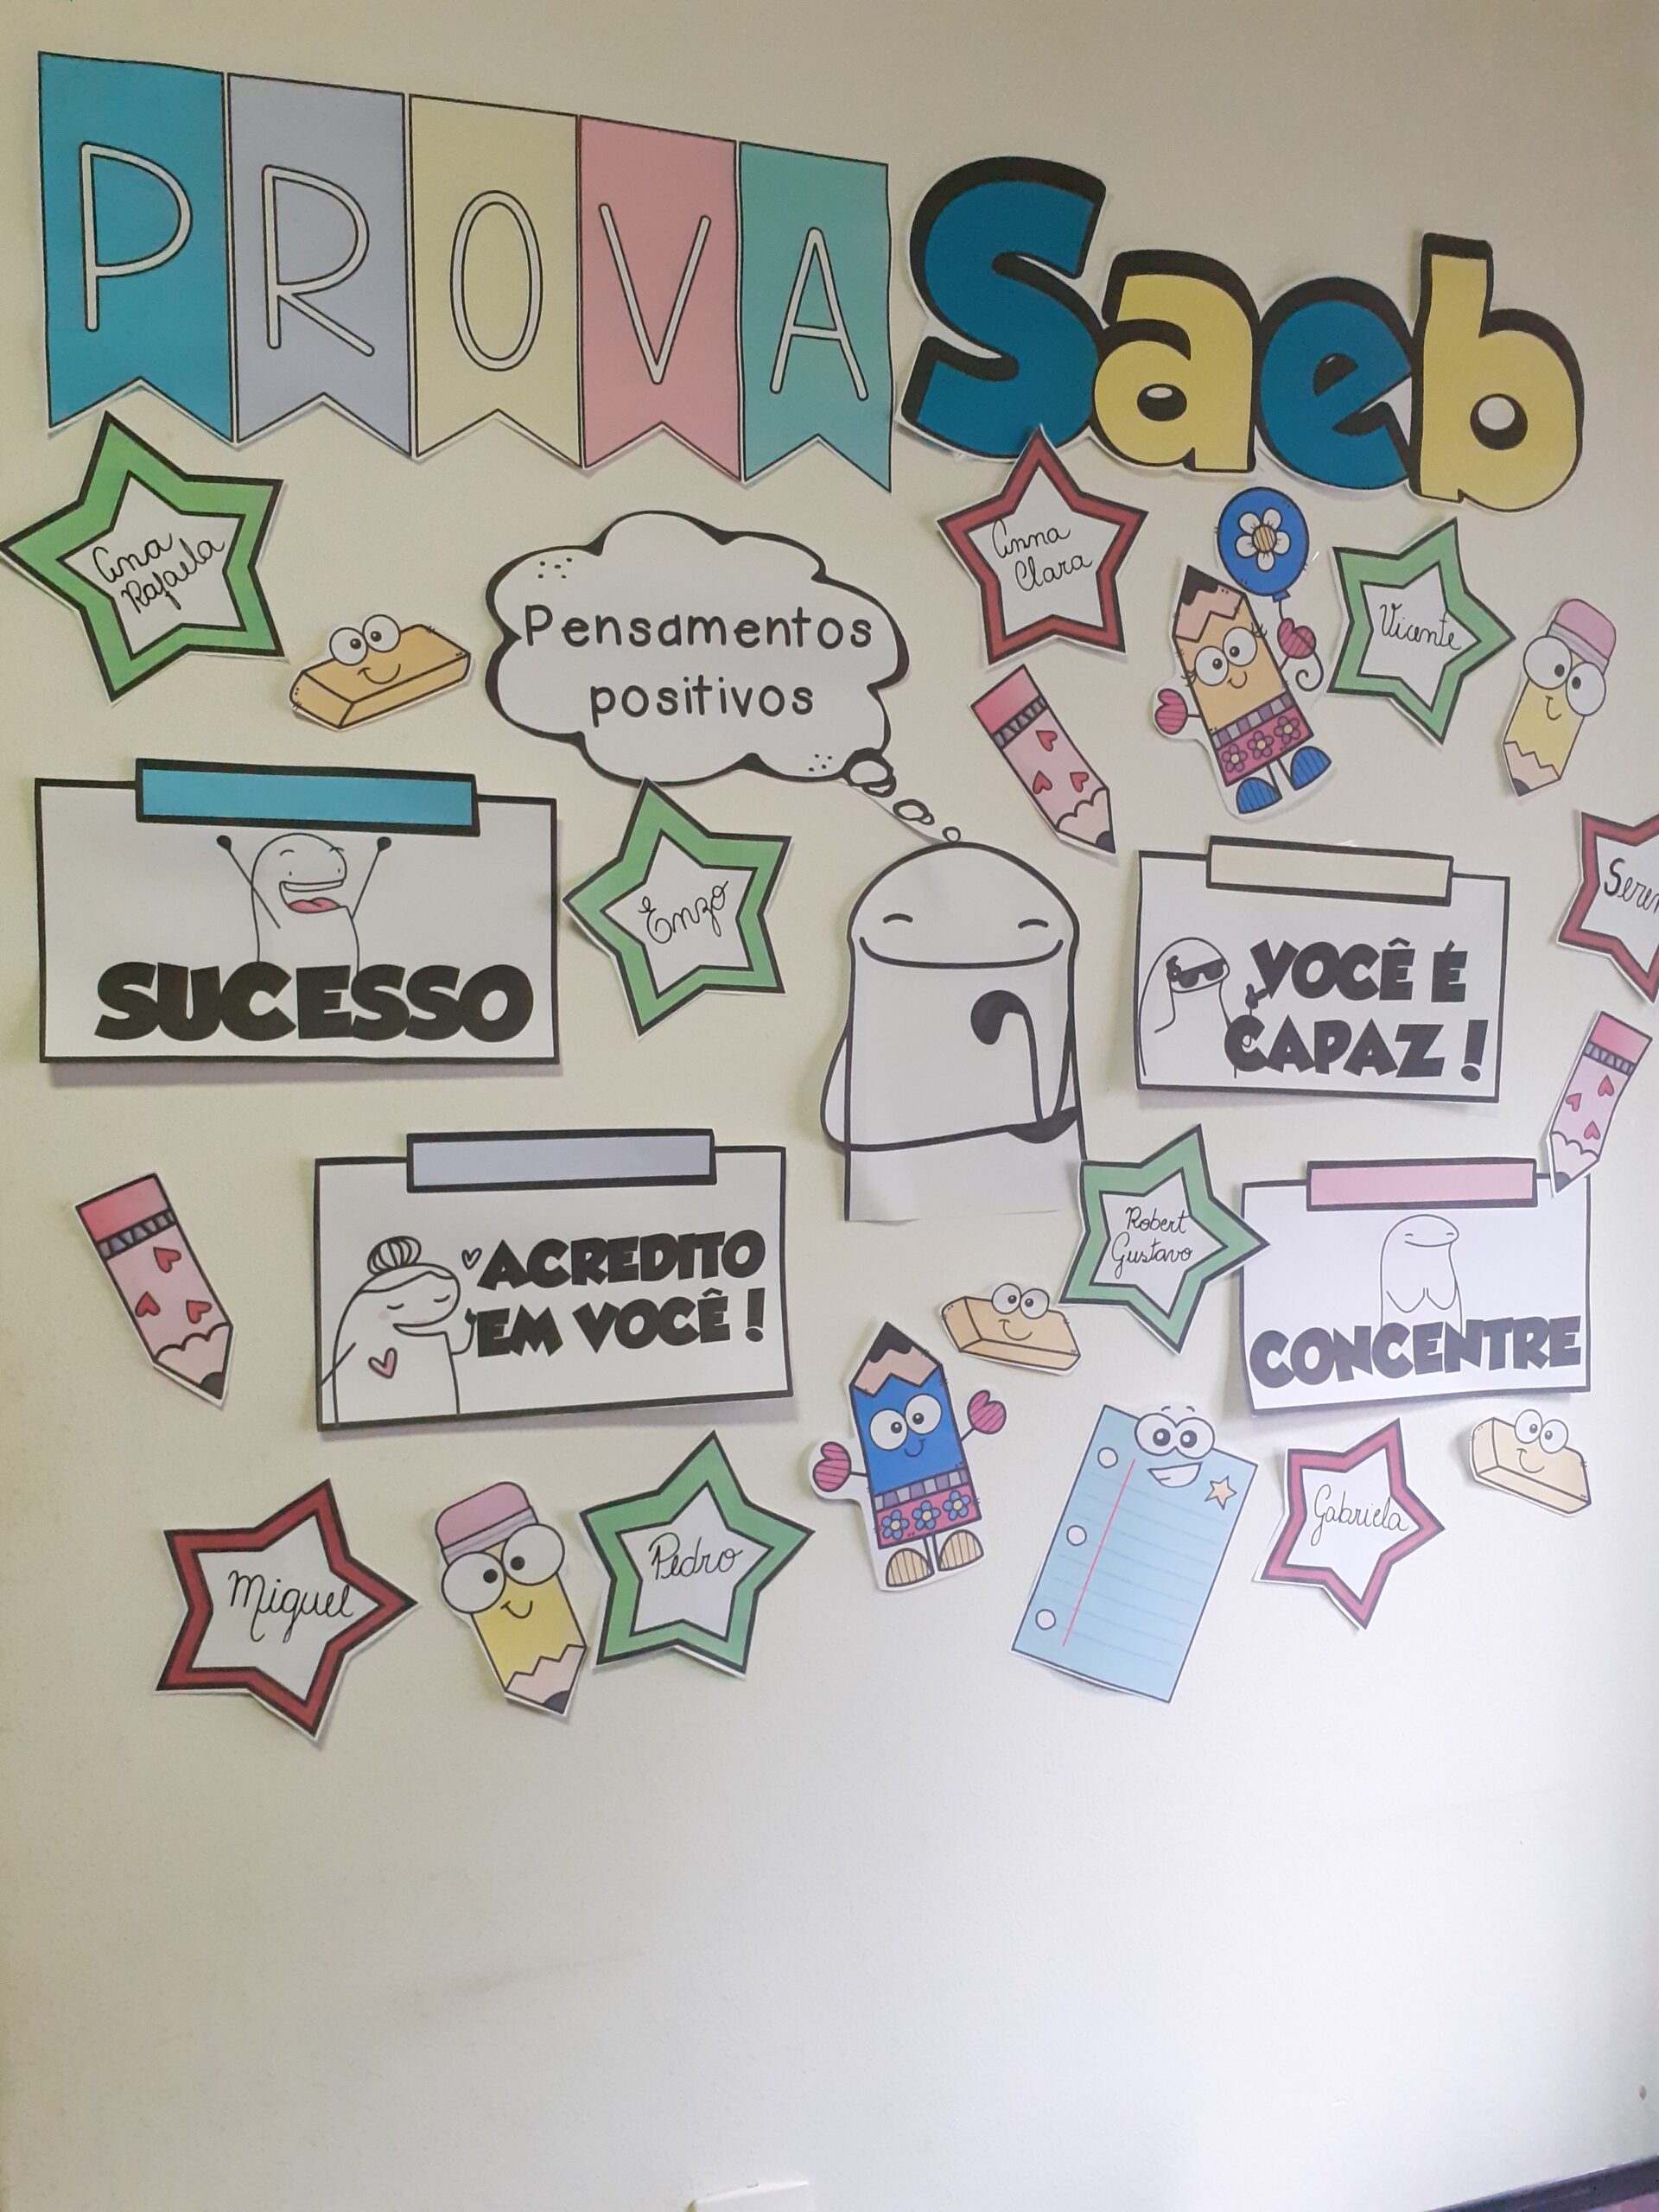 PROVA Saeb
Ana
Rafaela
Pensamentos
positivos
Anna
Clara
Vicente
SUCESSO
Enzo
VOCÊ É
CAPAZ!
ACREDITO
EM VOCÊ!
Robert
Gustavo
CONCENTRE
Miguel
Pedro
Gabriela